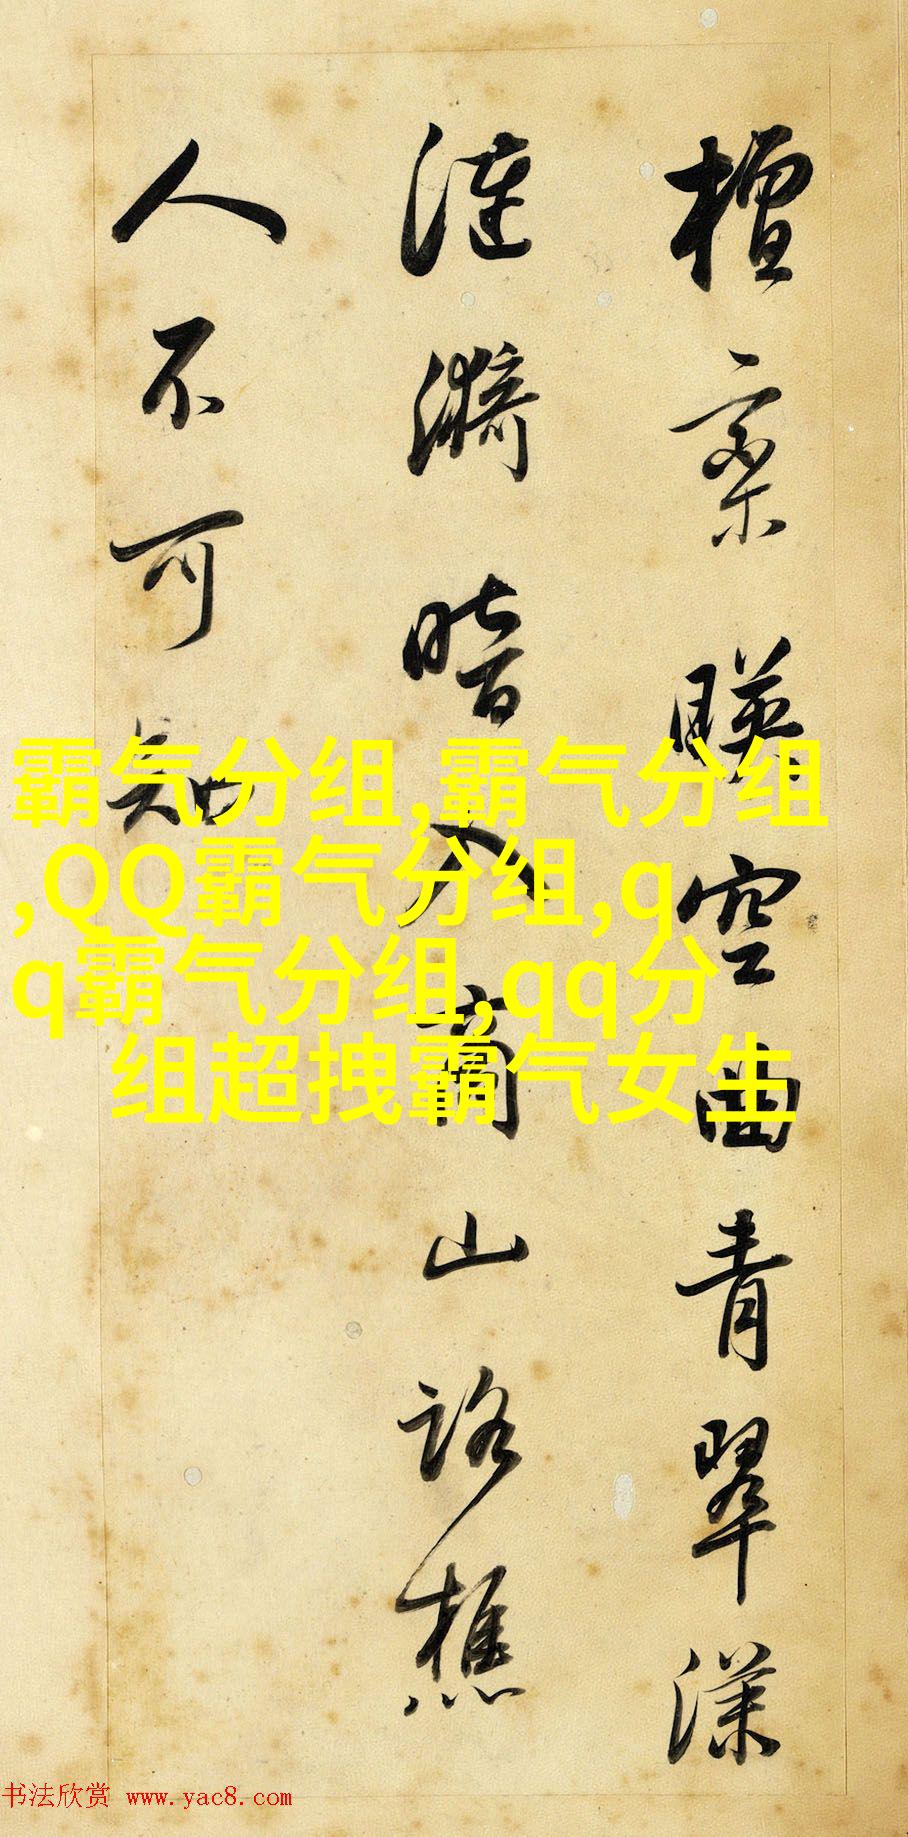 檀欒暎空曲青翠漾
漣漪暗入商山路樵
人不可知
霸气分组,霸气分组
,QQ霸气分组,q
q霸气分组,qq分
组超拽霸气女生
书法欣赏 www.yac8.com